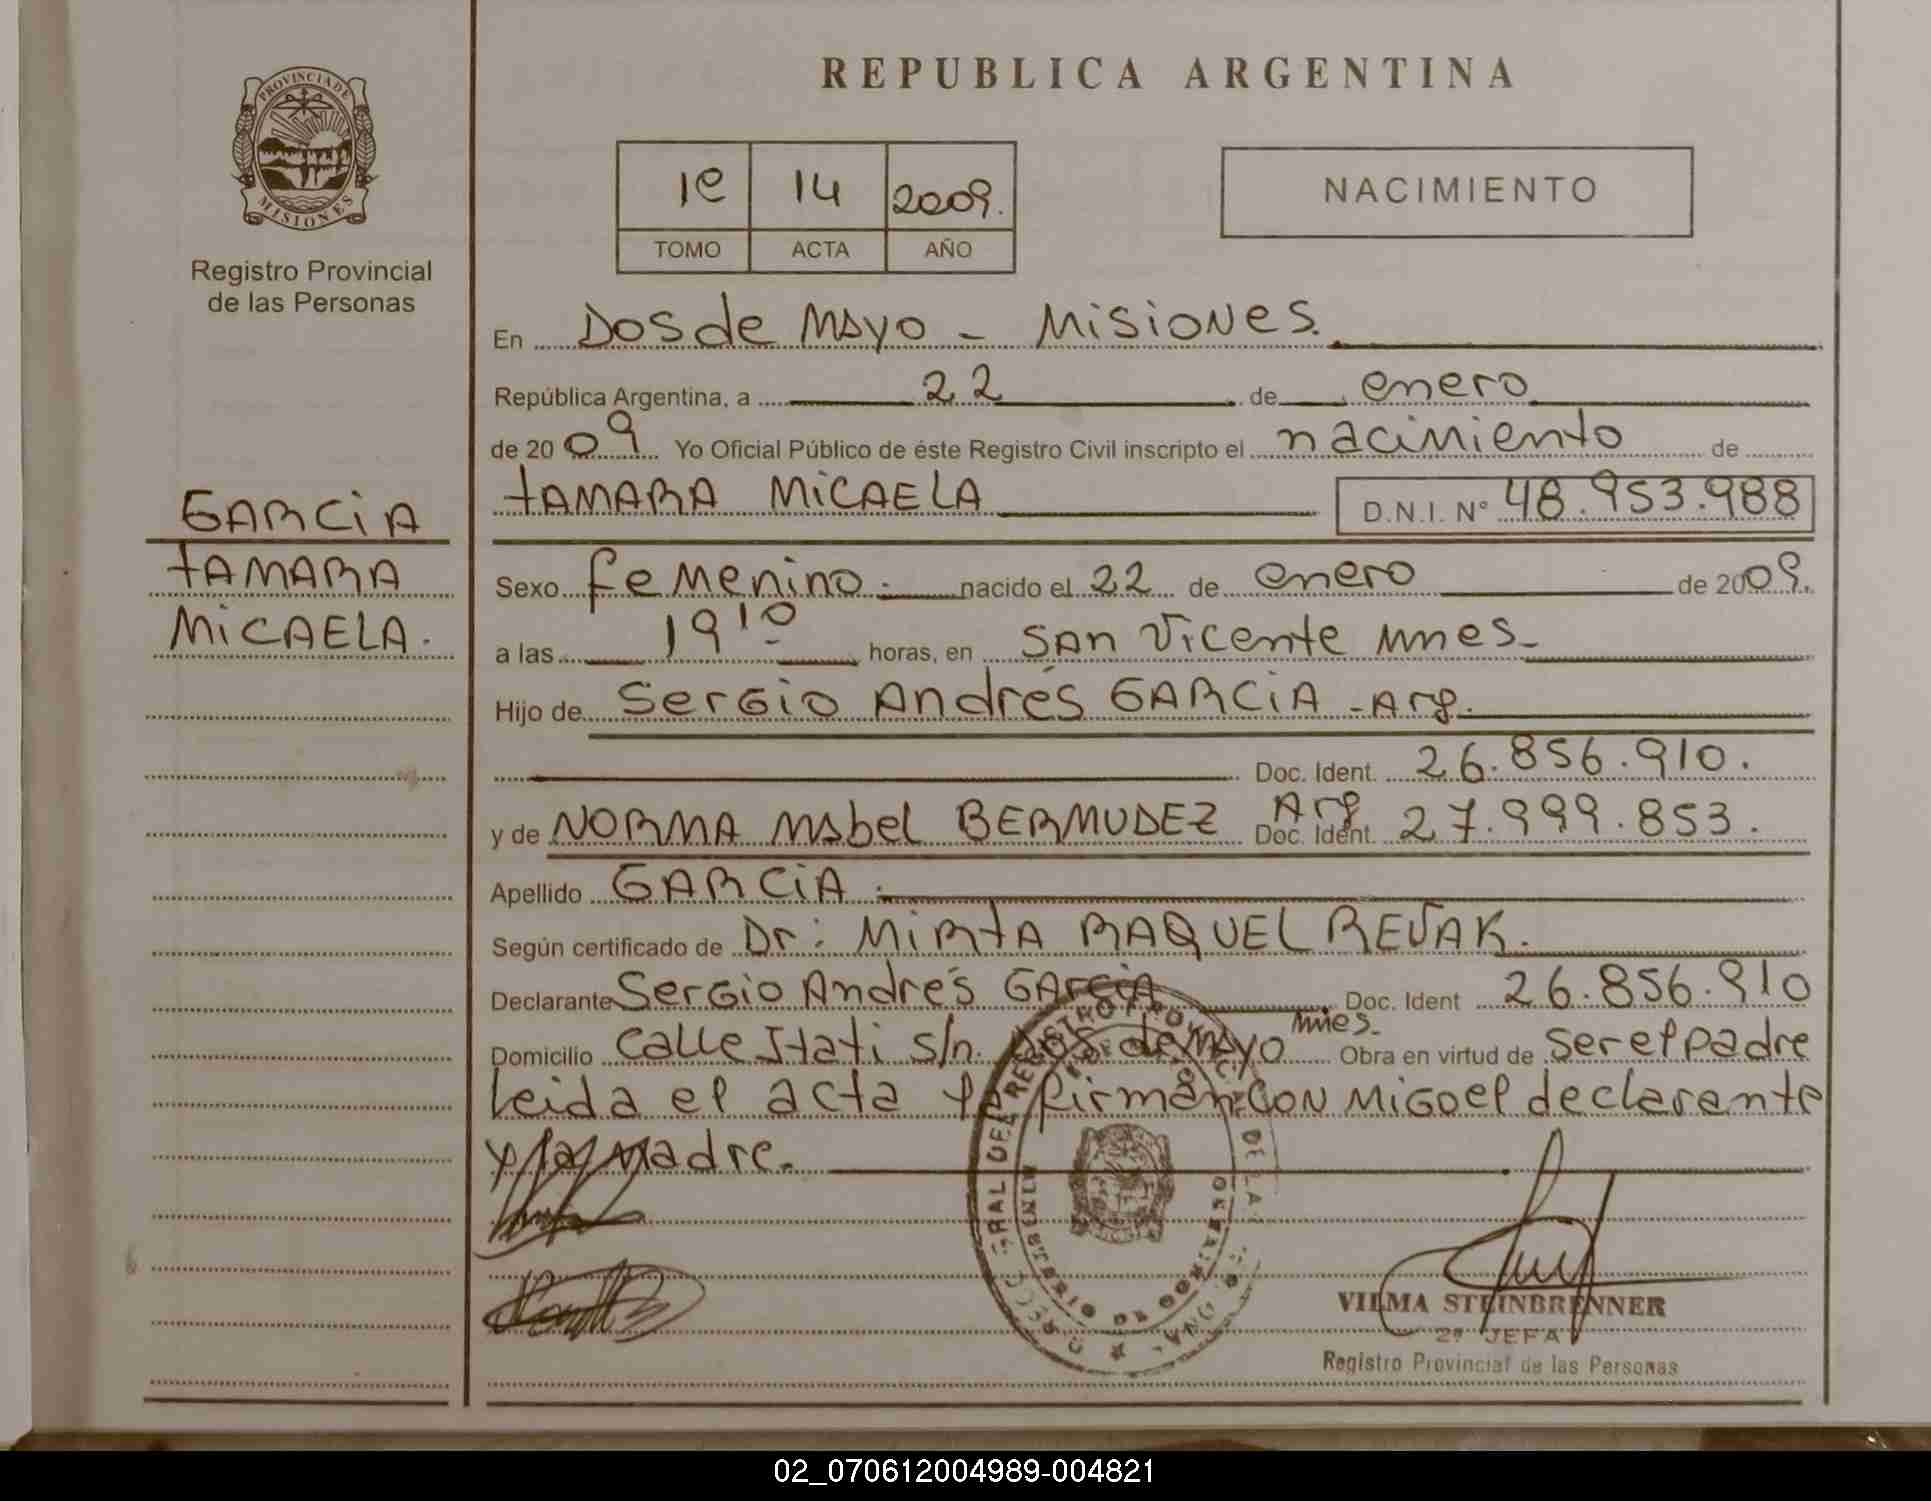 PROVINCIA DE
MISIONES
Registro Provincial
de las Personas
GARCIA
TAMARA
MICAELA.
REPUBLICA ARGENTINA
1e 14 2009.
TOMO ACTA AÑO
NACIMIENTO
En Dos de Mayo - Misiones.
República Argentina, a 22 de enero
de 2009 Yo Oficial Público de éste Registro Civil inscripto el nacimiento de
TAMARA MICAELA D.N.I. N° 48.953.988
Sexo femenino. nacido el 22 de enero de 2009.
a las 19 10 horas, en San Vicente Mnes-
Hijo de Sergio Andrés GARCIA - Arg.
Doc. Ident. 26.856.910.
y de NORMA Mabel BERMUDEZ Arg Doc. Ident. 27.999.853.
Apellido GARCIA.
Según certificado de Dr: MIRTA RAQUEL REJAK.
Declarante Sergio Andrés GARCIA Doc. Ident 26.856.910
Domicilio Calle Itati s/n. Dos de Mayo Mnes. Obra en virtud de ser el padre
Leida el acta la firman con migo el declarante
y la madre.
VILMA STEINBRENNER
2ª JEFA
Registro Provincial de las Personas
02_070612004989-004821